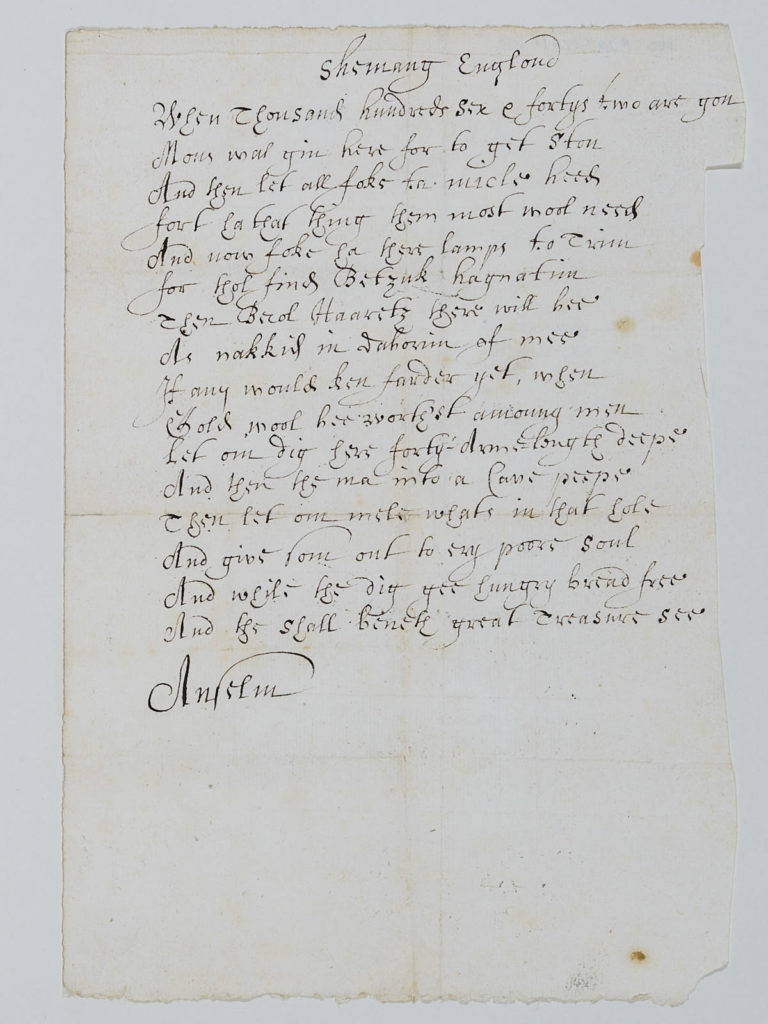 Shemang Englond
When Thousand hundreds sex & fortys two are gon
Mony wal gin here for to get Ston
And then let all foke ta micle heed
for t ha that thing them most wool need
And now foke ha there lamps to Trim
for thol find Betzuk hagnatim
Then Berol Haaretz there will bee
As nakkid in daborim of mee
If any would ken farder yet, when
Gold wool bee worth'st amoung men
Let om dig here forty-Arme-length deepe
And then the ma into a Cave peepe
Then let om mele whats in that hole
And give som out to ery poore soul
And while the dig gee hungry bread free
And the shall beneth great Treasure see
Anselm